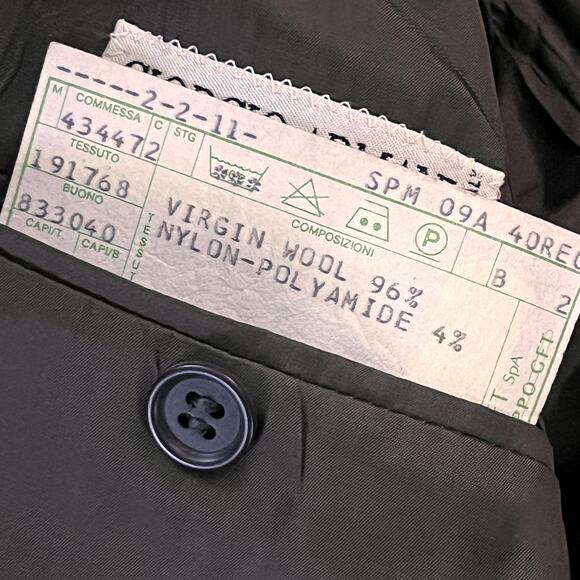 GIORGIO ARMANI
-----2-2-11-
M COMMESSA C STG
434472
TESSUTO
191768
BUONO
833040
CAPI/T. CAPI/B
TESSUT
SPM 09A 40REG
P
COMPOSIZIONI
B 2
VIRGIN WOOL 96%
NYLON-POLYAMIDE 4%
SpA